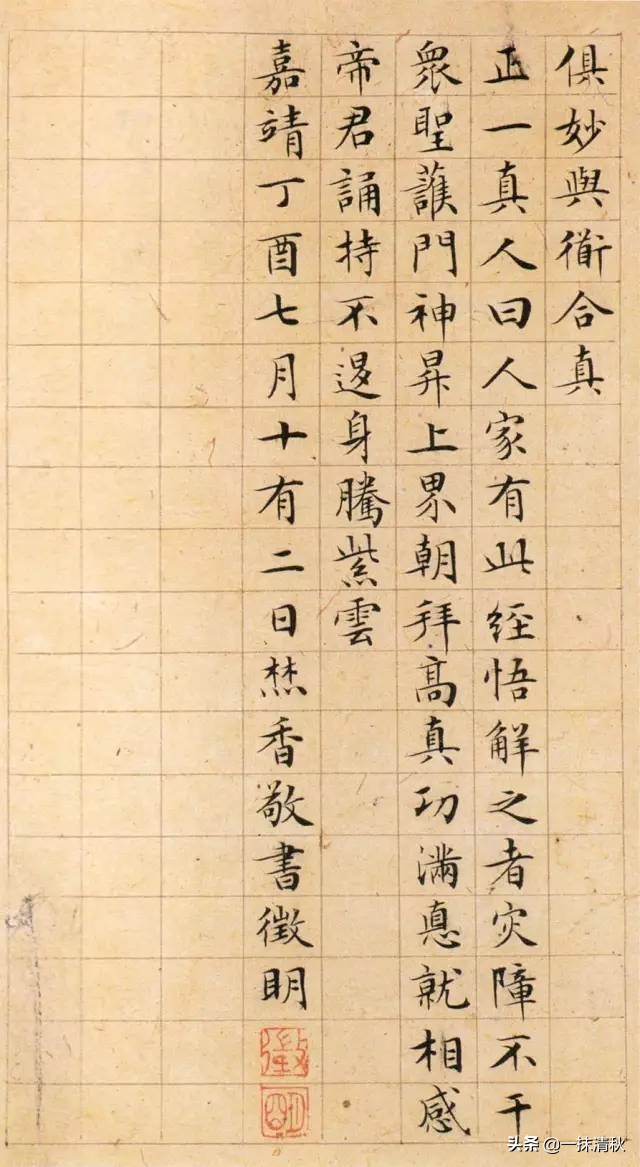 俱妙與衜合真
正一真人曰人家有此經悟觧之者灾障不干
眾聖護門神昇上界朝拜髙真功滿悳就相感
帝君誦持不退身騰紫雲
嘉靖丁酉七月十有二日焚香敬書徵明
徵
明
头条 @一抹清秋